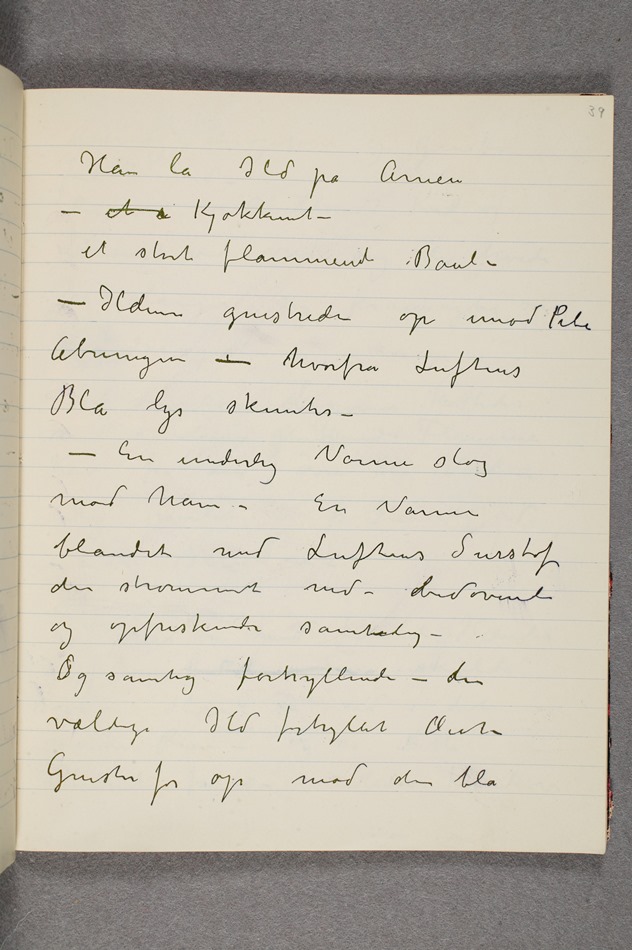 39
Han la Ild pa Arnen
– et i Kjøkkenet –
et stort flammende Baal –
– Ilden gnistreden op imod Pibe
Abningen – hvorfra Luftens
Bla lys skimtes –
– En underlig Varme slog
mod ham – En Varme
blandet med Luftens Surstof
der strømmet ned – bedøvende
og opfriskende samtidig –
Og samtidig fortryllende – den
vældige Ild fortyllet
Gnister for op mod den bla